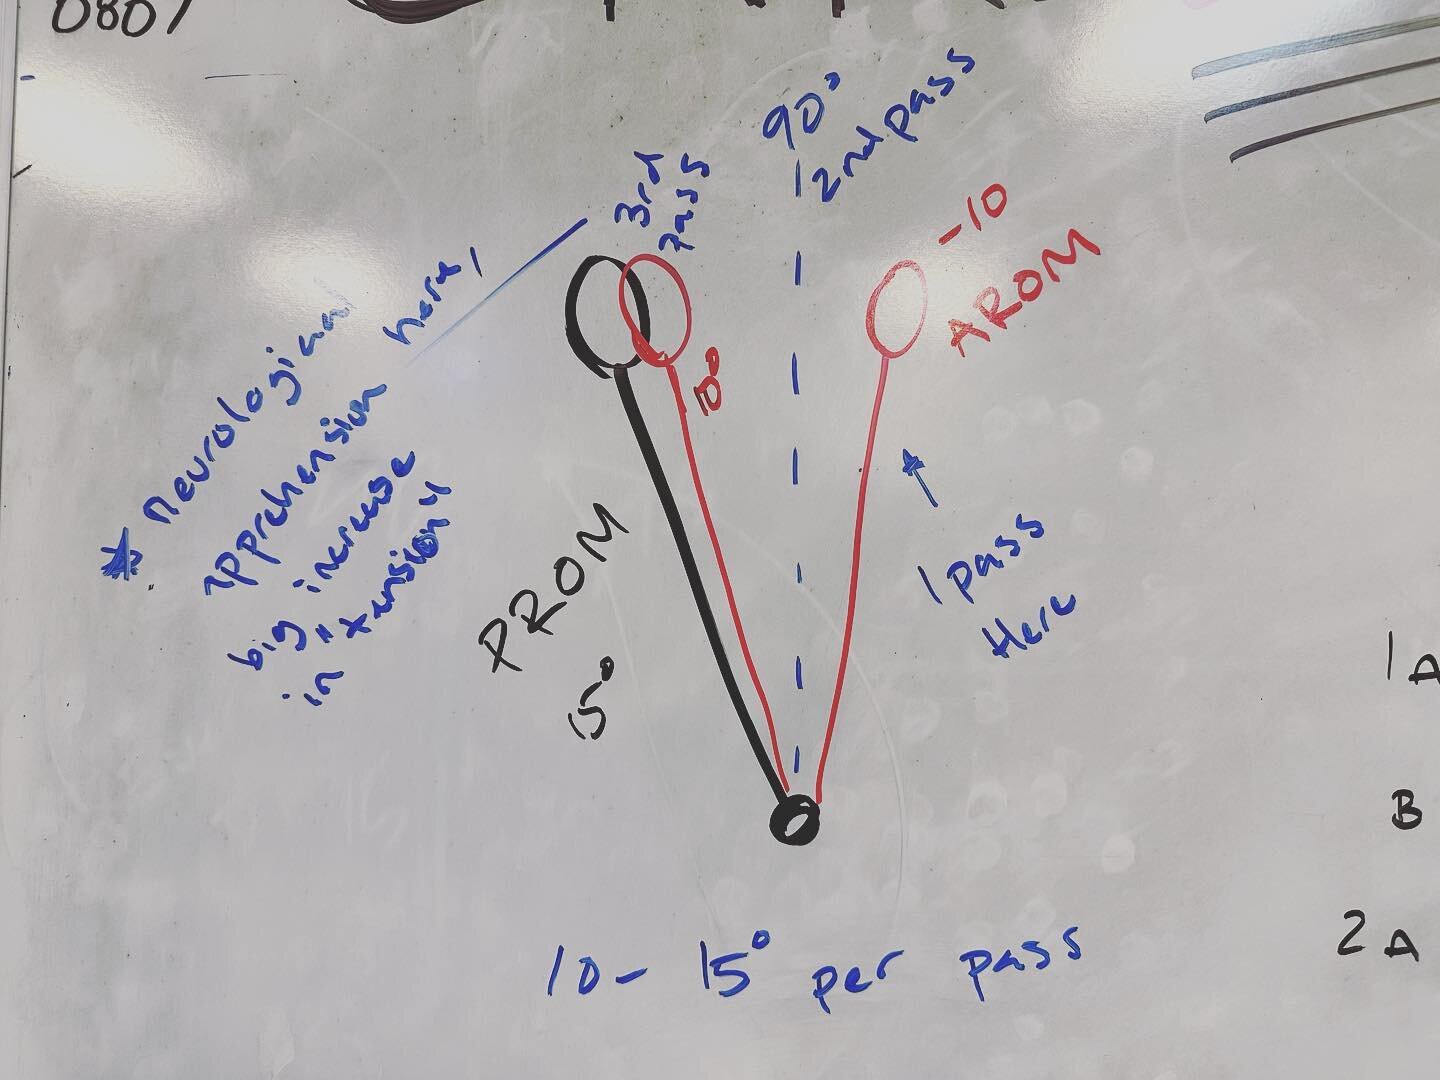 0807
90°
2nd pass
3rd
pass
-10
AROM
10°
* neurological
apprehension here,
big increase
in "xtension"
PROM
15°
1 pass
Here
10- 15° per pass
1 A
B
2 A